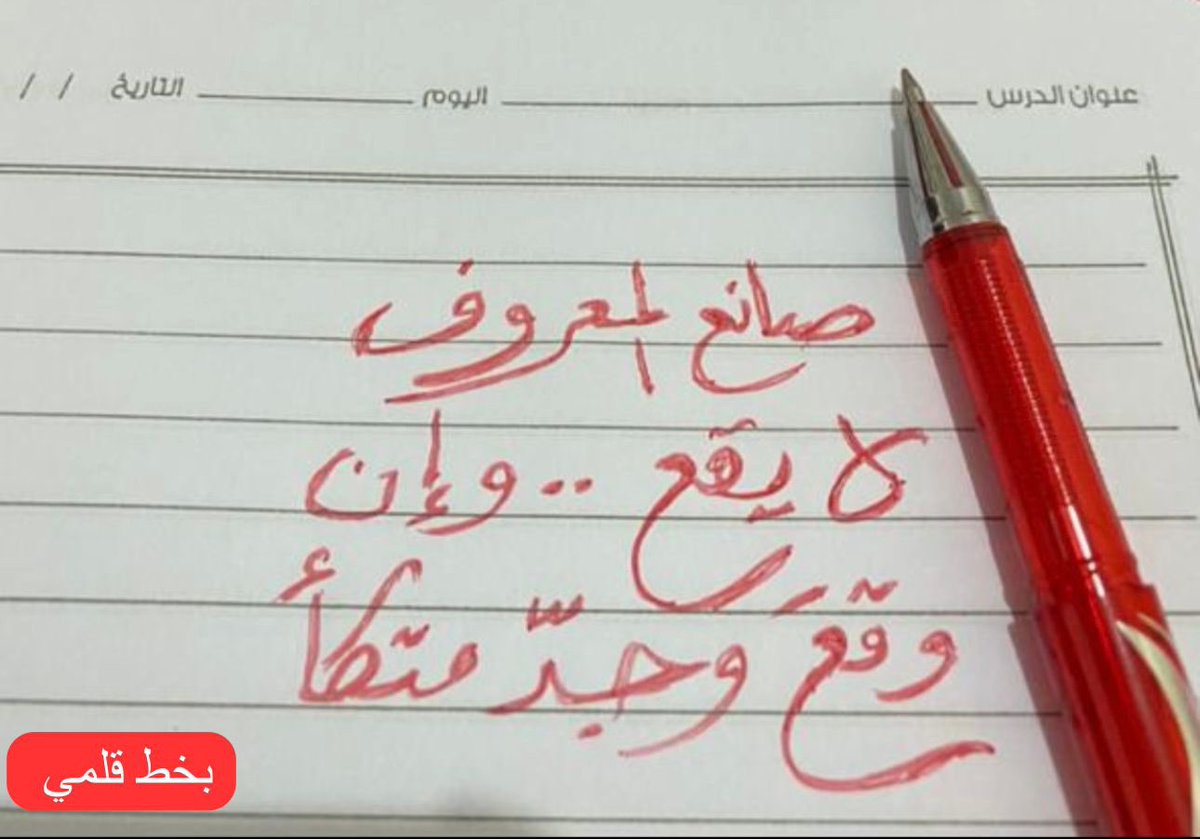 عنوان الدرس اليوم التاريخ / /
صانع المعروف
لا يقع .. وإن
وقع وجدّ متكأ
بخط قلمي